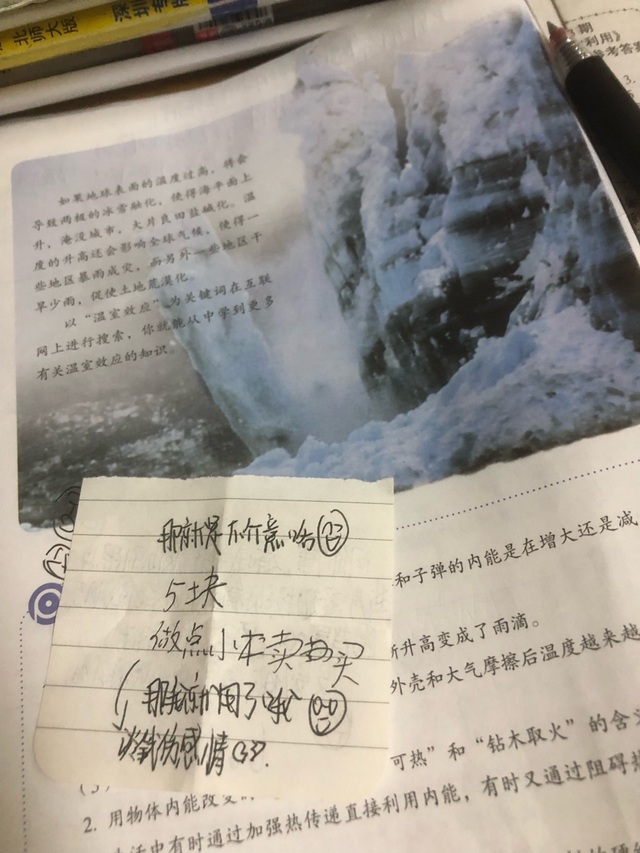 北师大版
深圳专版
期
利用》
参考答案
3.
如果地球表面的温度过高，将会
导致两极的冰雪融化，使得海平面上
升，淹没城市，大片良田盐碱化。温
度的升高还会影响全球气候，使得一
些地区暴雨成灾，而另外一些地区干
旱少雨，促使土地荒漠化。
以“温室效应”为关键词在互联
网上进行搜索，你就能从中学到更多
有关温室效应的知识。
那就是不介意哈
5块
做点小本卖买
那我就不用了哦
谈钱伤感情
和子弹的内能是在增大还是减
升高变成了雨滴。
外壳和大气摩擦后温度越来越
可热”和“钻木取火”的含义
2. 用物体内能改变的
生活中有时通过加强热传递直接利用内能，有时又通过阻碍热